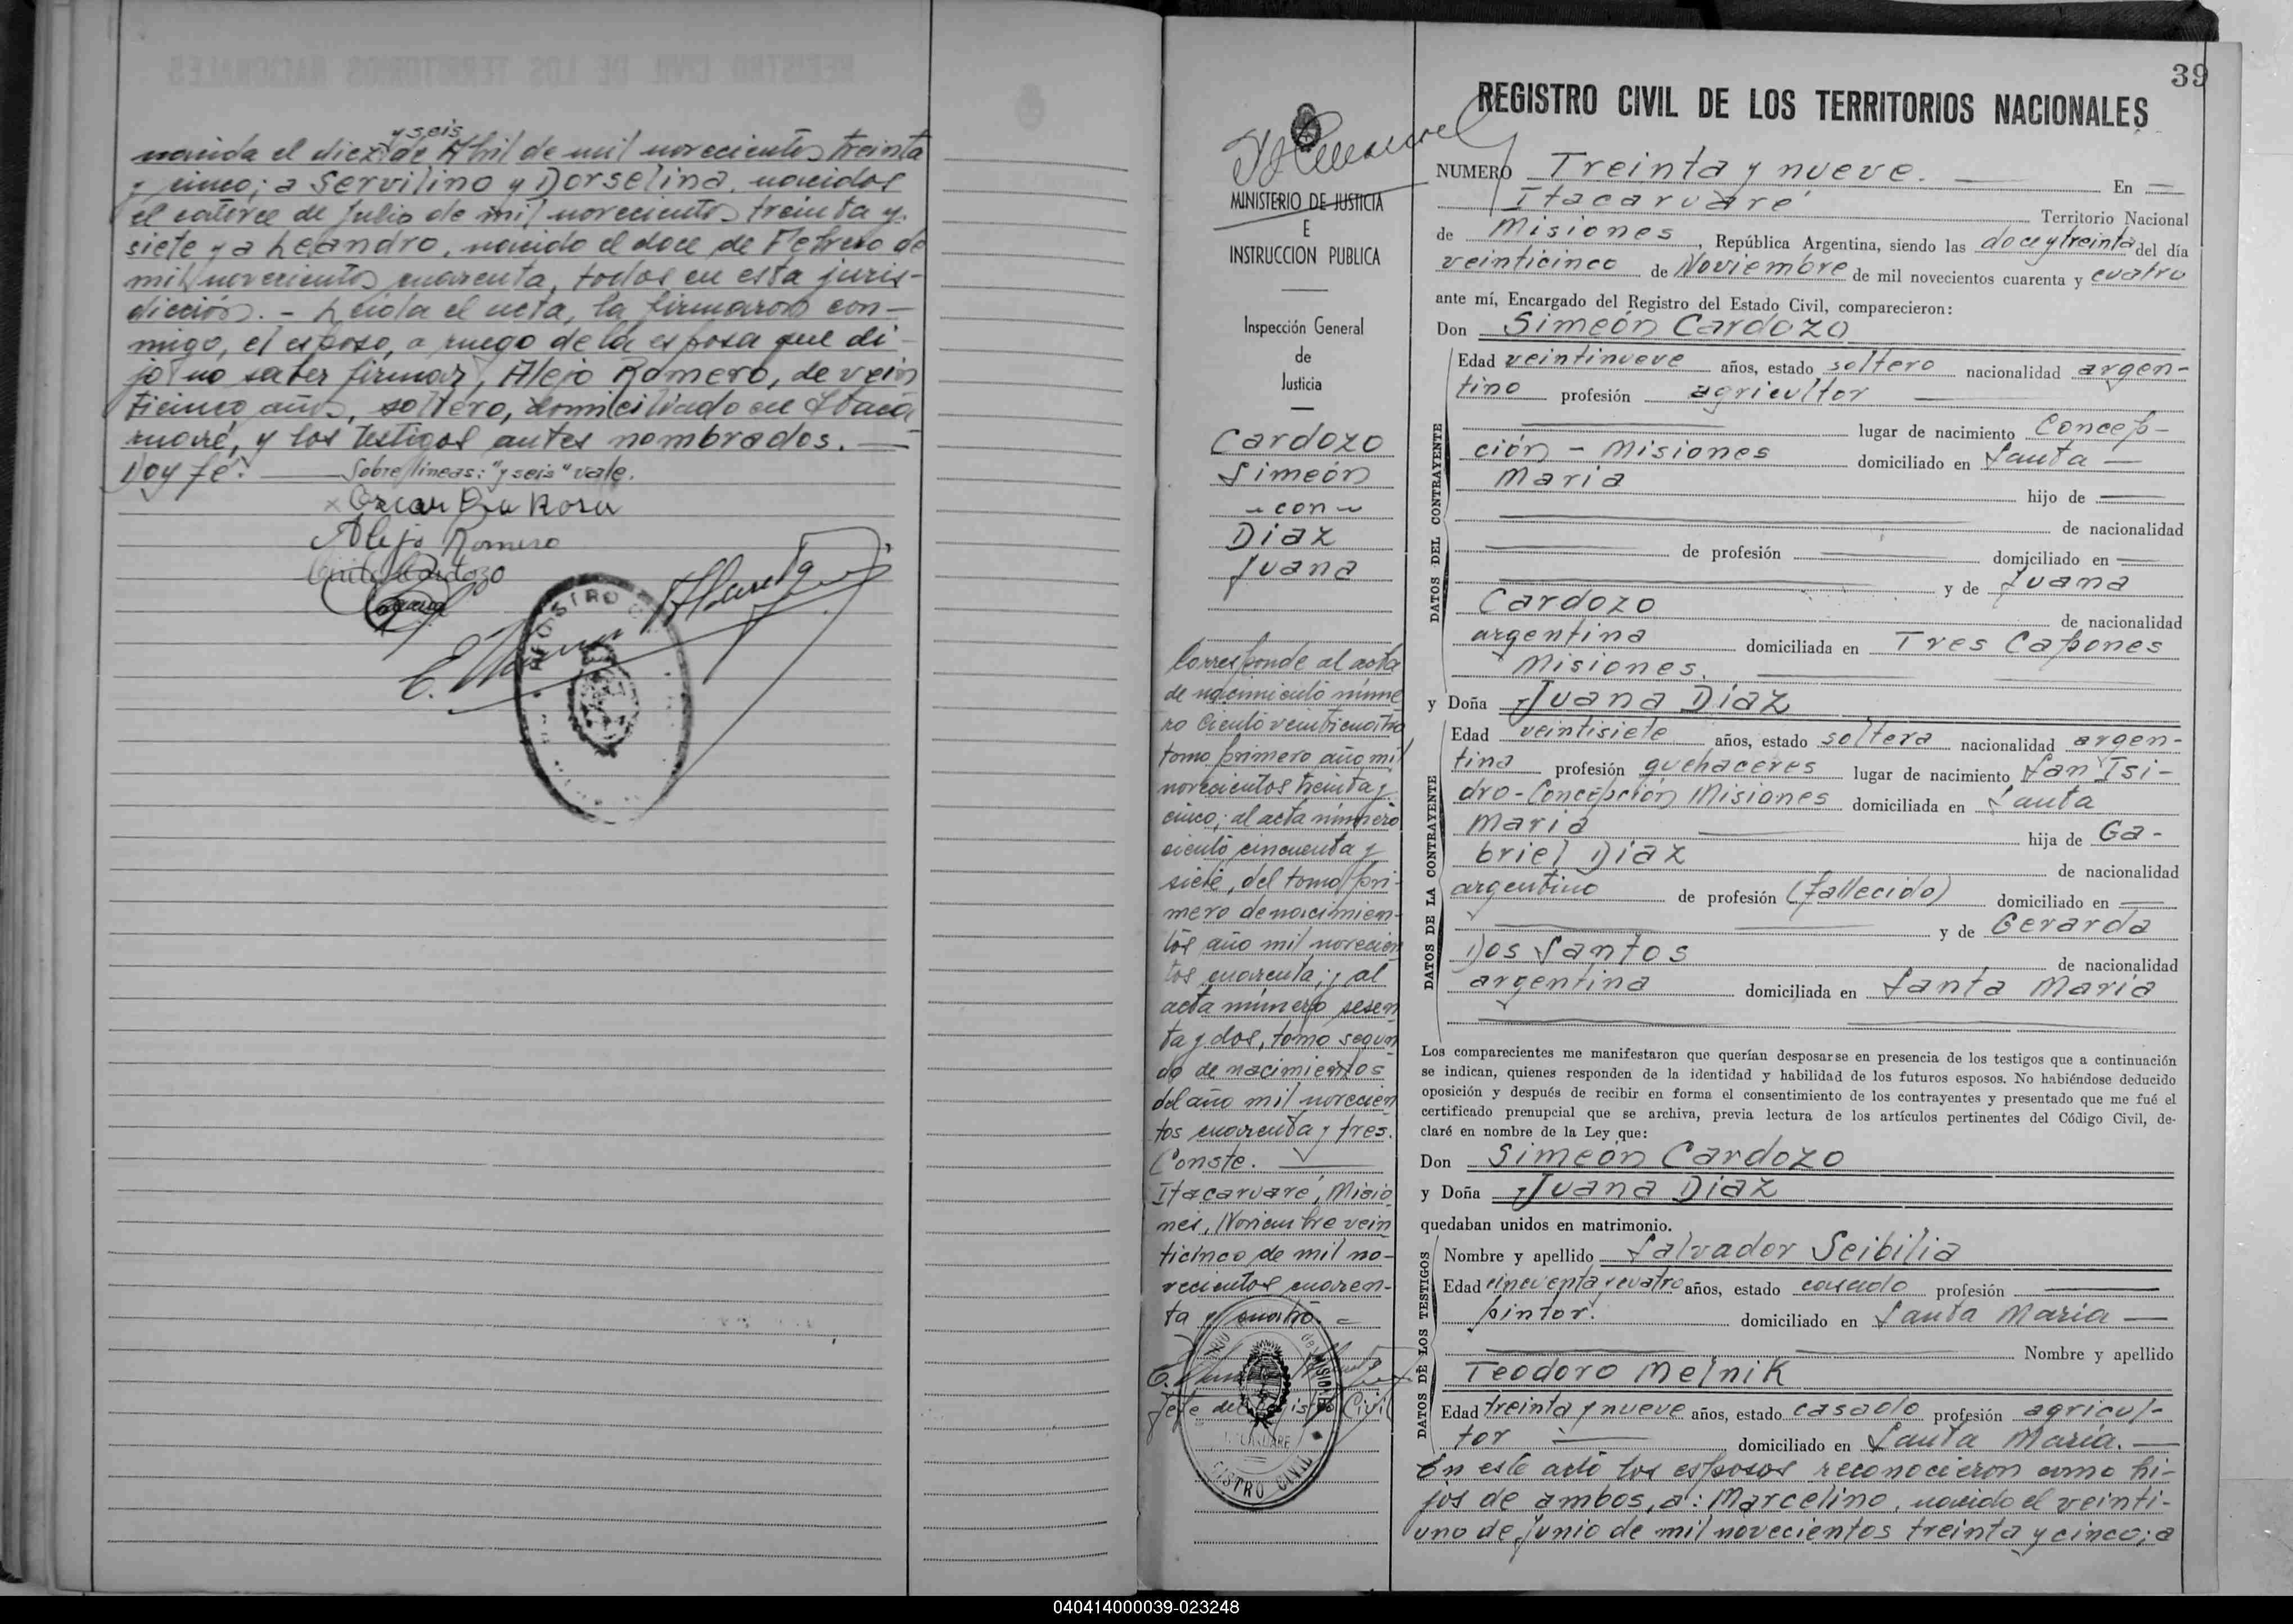 y seis
nacida el diez de Abril de mil novecientos treinta
y cinco; a Servilino y Dorselina, nacidos
el catorce de Julio de mil novecientos treinta y
siete y a Leandro, nacido el doce de Febrero de
mil novecientos cuarenta, todos en esta juris-
dicción. - Leída el acta, la firmaron con-
migo, el esposo, a ruego de la esposa que di-
jo no saber firmar, Alejo Romero, de vein
ticinco años, soltero, domiciliado en Itaca
ruaré, y los testigos antes nombrados. —
Doy fé. — Sobre líneas: "y seis" vale.
Alejo Romero
Cardozo
REGISTRO
39
REGISTRO CIVIL DE LOS TERRITORIOS NACIONALES
MINISTERIO DE JUSTICIA
E
INSTRUCCION PUBLICA
Inspección General
de
Justicia
Cardozo
Simeón
- con -
Diaz
Juana
Corresponde al acta
de nacimiento núme
ro ciento veinticuatro
tomo primero año mil
novecientos treinta y
cinco; al acta número
ciento cincuenta y
siete, del tomo pri-
mero de nacimien-
tos año mil novecien
tos cuarenta; y al
acta número sesen
ta y dos, tomo segun
do de nacimientos
del año mil novecien
tos cuarenta y tres.
Conste. —
Itacaruaré, Misio
nes, Noviembre vein
ticinco de mil no-
vecientos cuaren-
ta y cuatro. =
Jefe del Registro Civil
REGISTRO CIVIL
MISIONES
NUMERO Treinta y nueve. — En —
Itacaruaré Territorio Nacional
de Misiones, República Argentina, siendo las doce y treinta del día
veinticinco de Noviembre de mil novecientos cuarenta y cuatro
ante mí, Encargado del Registro del Estado Civil, comparecieron:
Don Simeón Cardozo
DATOS DEL CONTRAYENTE
Edad veintinueve años, estado soltero nacionalidad argen-
tino profesión agricultor —
— lugar de nacimiento Concep-
ción - Misiones domiciliado en Santa —
Maria hijo de —
— de nacionalidad
— de profesión — domiciliado en —
— y de Juana
Cardozo de nacionalidad
argentina domiciliada en Tres Capones
Misiones. —
y Doña Juana Diaz
DATOS DE LA CONTRAYENTE
Edad veintisiete años, estado soltera nacionalidad argen-
tina profesión quehaceres lugar de nacimiento San Isi-
dro-Concepción Misiones domiciliada en Santa
Maria — hija de Ga-
briel Diaz de nacionalidad
argentino de profesión (fallecido) domiciliado en —
— y de Gerarda
Dos Santos de nacionalidad
argentina domiciliada en Santa Maria
Los comparecientes me manifestaron que querían desposarse en presencia de los testigos que a continuación
se indican, quienes responden de la identidad y habilidad de los futuros esposos. No habiéndose deducido
oposición y después de recibir en forma el consentimiento de los contrayentes y presentado que me fué el
certificado prenupcial que se archiva, previa lectura de los artículos pertinentes del Código Civil, de-
claré en nombre de la Ley que:
Don Simeón Cardozo
y Doña Juana Diaz
quedaban unidos en matrimonio.
DATOS DE LOS TESTIGOS
Nombre y apellido Salvador Seibilia
Edad cincuenta y cuatro años, estado casado profesión —
pintor. domiciliado en Santa Maria —
— Nombre y apellido
Teodoro Melnik
Edad treinta y nueve años, estado casado profesión agricul-
tor — domiciliado en Santa Maria. —
En este acto los esposos reconocieron como hi-
jos de ambos, a: Marcelino, nacido el veinti-
uno de Junio de mil novecientos treinta y cinco; a
040414000039-023248